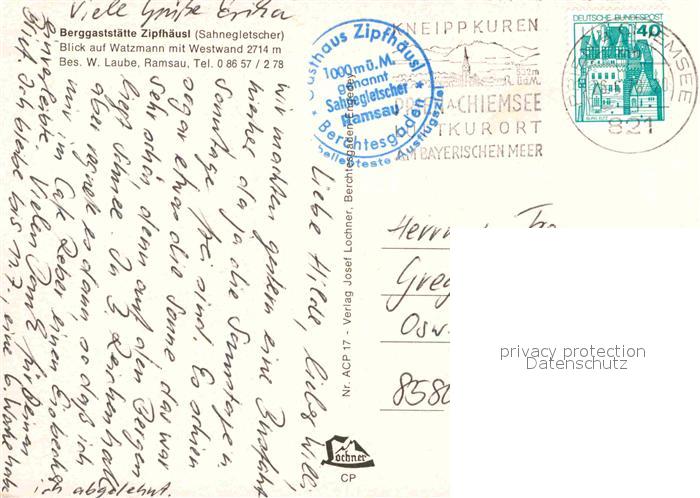 Viele Grüße Erika
Berggaststätte Zipfhäusl (Sahnegletscher)
Blick auf Watzmann mit Westwand 2714 m
Bes. W. Laube, Ramsau, Tel. 0 86 57 / 2 78
Gasthaus Zipfhäusl
1000 m ü. M.
genannt
Sahnegletscher
Ramsau
Berchtesgaden
beliebteste Ausflugsziel
KNEIPPKUREN
PRIEN a CHIEMSEE
LUFTKURORT
AM BAYERISCHEN MEER
DEUTSCHE BUNDESPOST
40
BURG ELTZ
821
Liebe Hilde, lieber Willi,
wir machten gestern eine Busfahrt
hierher, da ja die Samstage u.
Sonntage frei sind. Es schien
sogar etwas die Sonne das war
sehr schön, denn auf den Bergen
liegt Schnee. In B. Reichenhall
regnete es dann so daß ich
nur im Café Reber einen Eisbecher
Vielen Dank für Deinen
ich bleibe bis 17., eine Woche habe
ich abgelehnt.
Nr. ACP 17 - Verlag Josef Lochner, Berchtesgaden
Lochner
CP
Herrn
Greg
Osw.
8580
privacy protection
Datenschutz